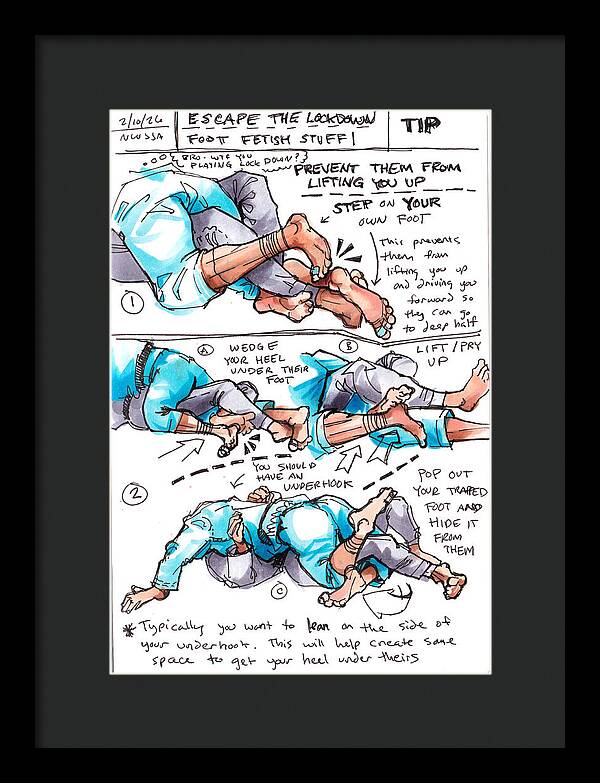 2/10/26
NWSSA
ESCAPE THE LOCKDOWN
FOOT FETISH STUFF!
TIP
BRO. WYE YOU
PLAYING LOCK DOWN?
PREVENT THEM FROM
LIFTING YOU UP
STEP ON YOUR
OWN FOOT
This prevents
them from
lifting you up
and driving you
forward so
they can go
to deep half
1
A
WEDGE
YOUR HEEL
UNDER THEIR
FOOT
B
LIFT/PRY
UP
2
YOU SHOULD
HAVE AN
UNDERHOOK
POP OUT
YOUR TRAPED
FOOT AND
HIDE IT
FROM
THEM
C
* Typically you want to lean on the side of
your underhook. This will help create some
space to get your heel under theirs